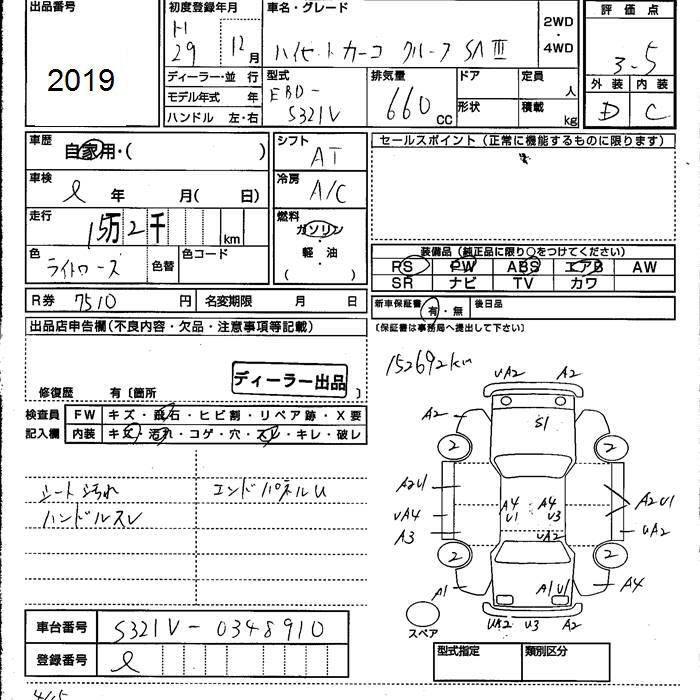 出品番号
2019
初度登録年月
H
29 12月
車名・グレード
ハイゼットカーゴ クルーズ SAⅢ
2WD
・
4WD
評価点
3.5
外装 内装
D C
ディーラー・並 行
モデル年式 年
ハンドル 左・右
型式
EBD-
S321V
排気量
660
CC
ドア
形状
定員
人
積載
kg
車歴
自家用・( )
車検
年 月( 日)
走行
15万 2千
km
色
ライトローズ
色替
色コード
R券 7510 円
名変期限 月 日
シフト
AT
冷房
A/C
燃料
ガソリン
・
軽・油
( )
セールスポイント(正常に機能するものに限ります)
装備品(純正品に限り○をつけてください)
PS PW ABS エアB AW
SR ナビ TV カワ
新車保証書
有・無
後日品
〔保証書は事務局へ提出して下さい〕
出品店申告欄(不良内容・欠品・注意事項等記載)
ディーラー出品
修復歴 有〔箇所 〕
検査員
記入欄
FW キズ・飛石・ヒビ割・リペア跡・X要
内装 キズ・汚れ・コゲ・穴・スレ・キレ・破レ
シート汚れ
ハンドルスレ
エンドパネルU
152692km
UA2 A2
A2
S1
A2
2 2
A2U1
UA4
A3
A4
U1
A4
U3
UA2
A2U1
UA2
2 2
A1
A1U1
A4
UA2 U3 A2
スペア
車台番号 S321V-0348910
登録番号
型式指定 類別区分